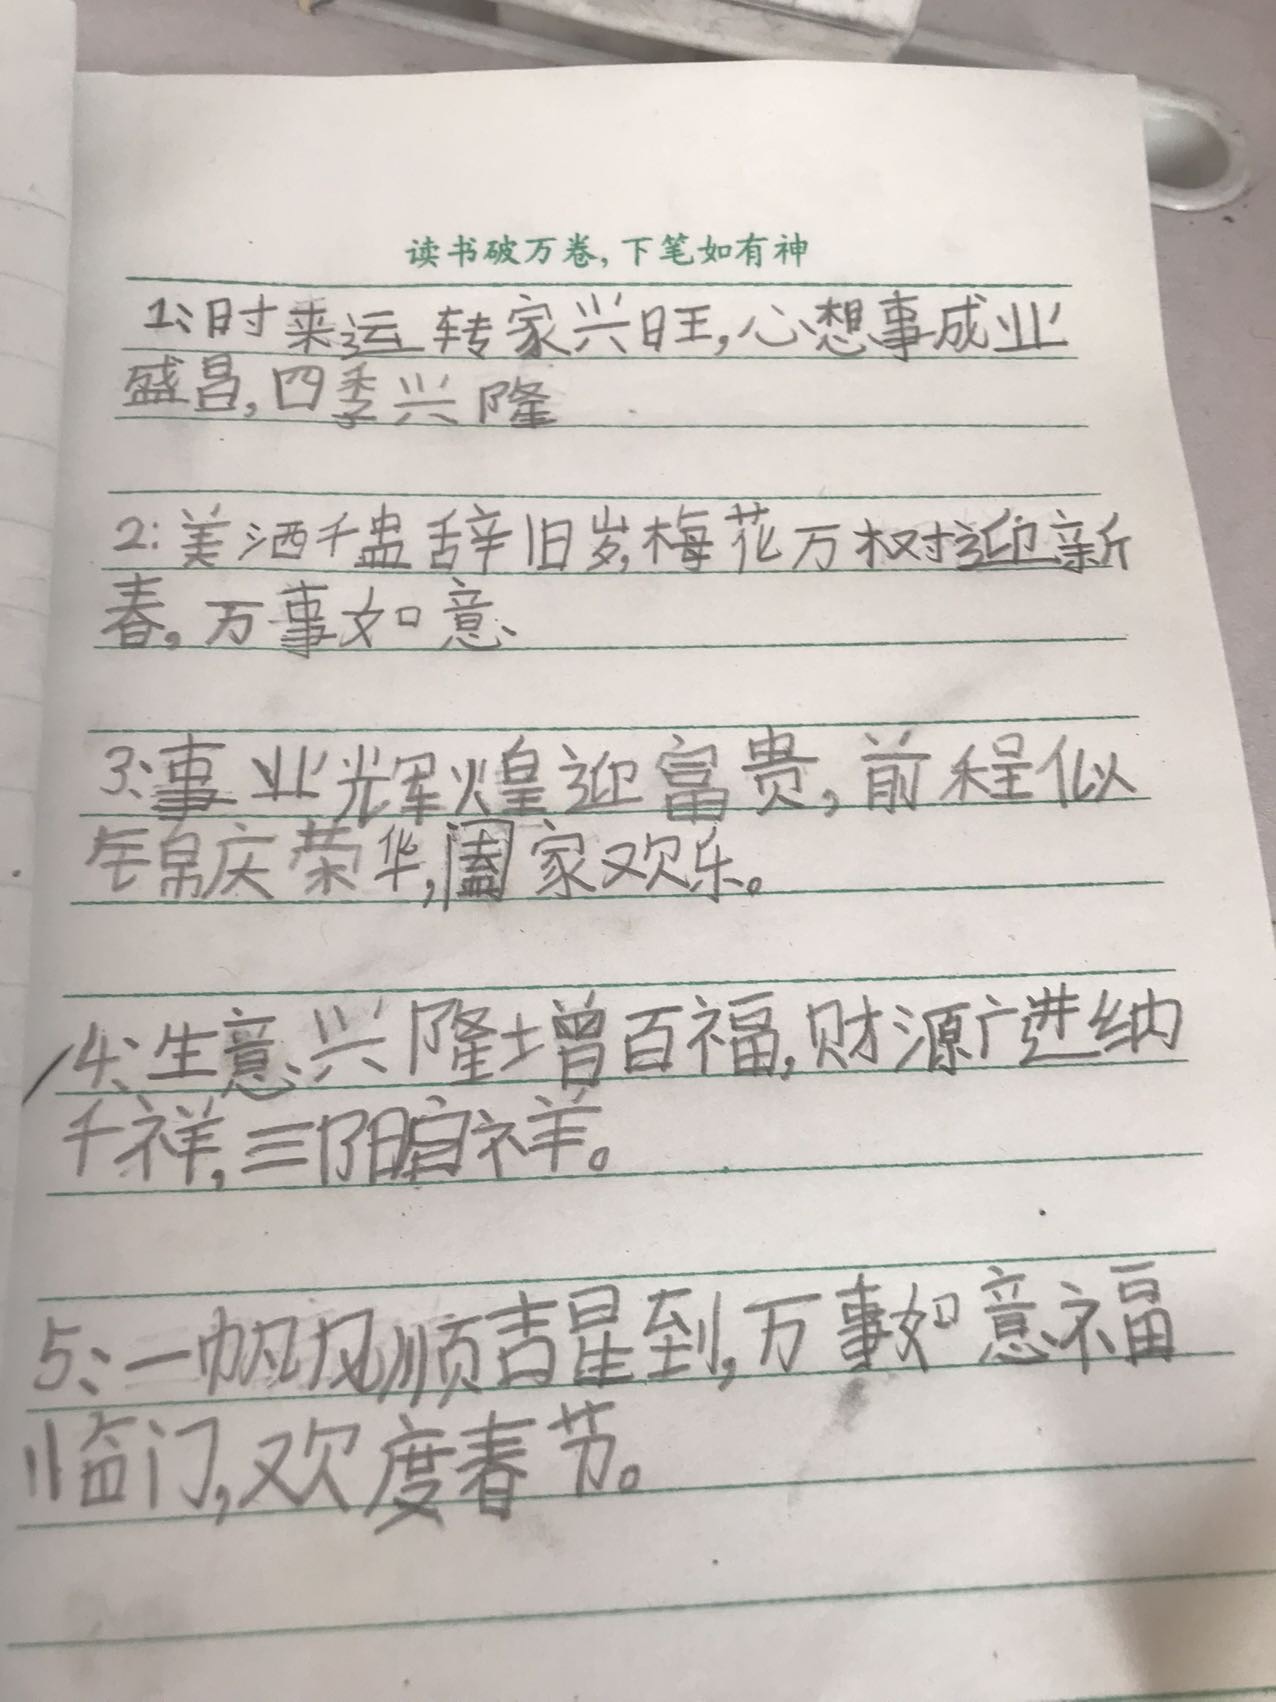 读书破万卷，下笔如有神
1、时来运转家兴旺，心想事成业
盛昌，四季兴隆
2：美酒千盅辞旧岁，梅花万树迎新
春，万事如意
3、事业辉煌迎富贵，前程似
锦庆荣华，阖家欢乐。
4、生意兴隆增百福，财源广进纳
千祥，三阳启祥。
5、一帆风顺吉星到，万事如意福
临门，欢度春节。